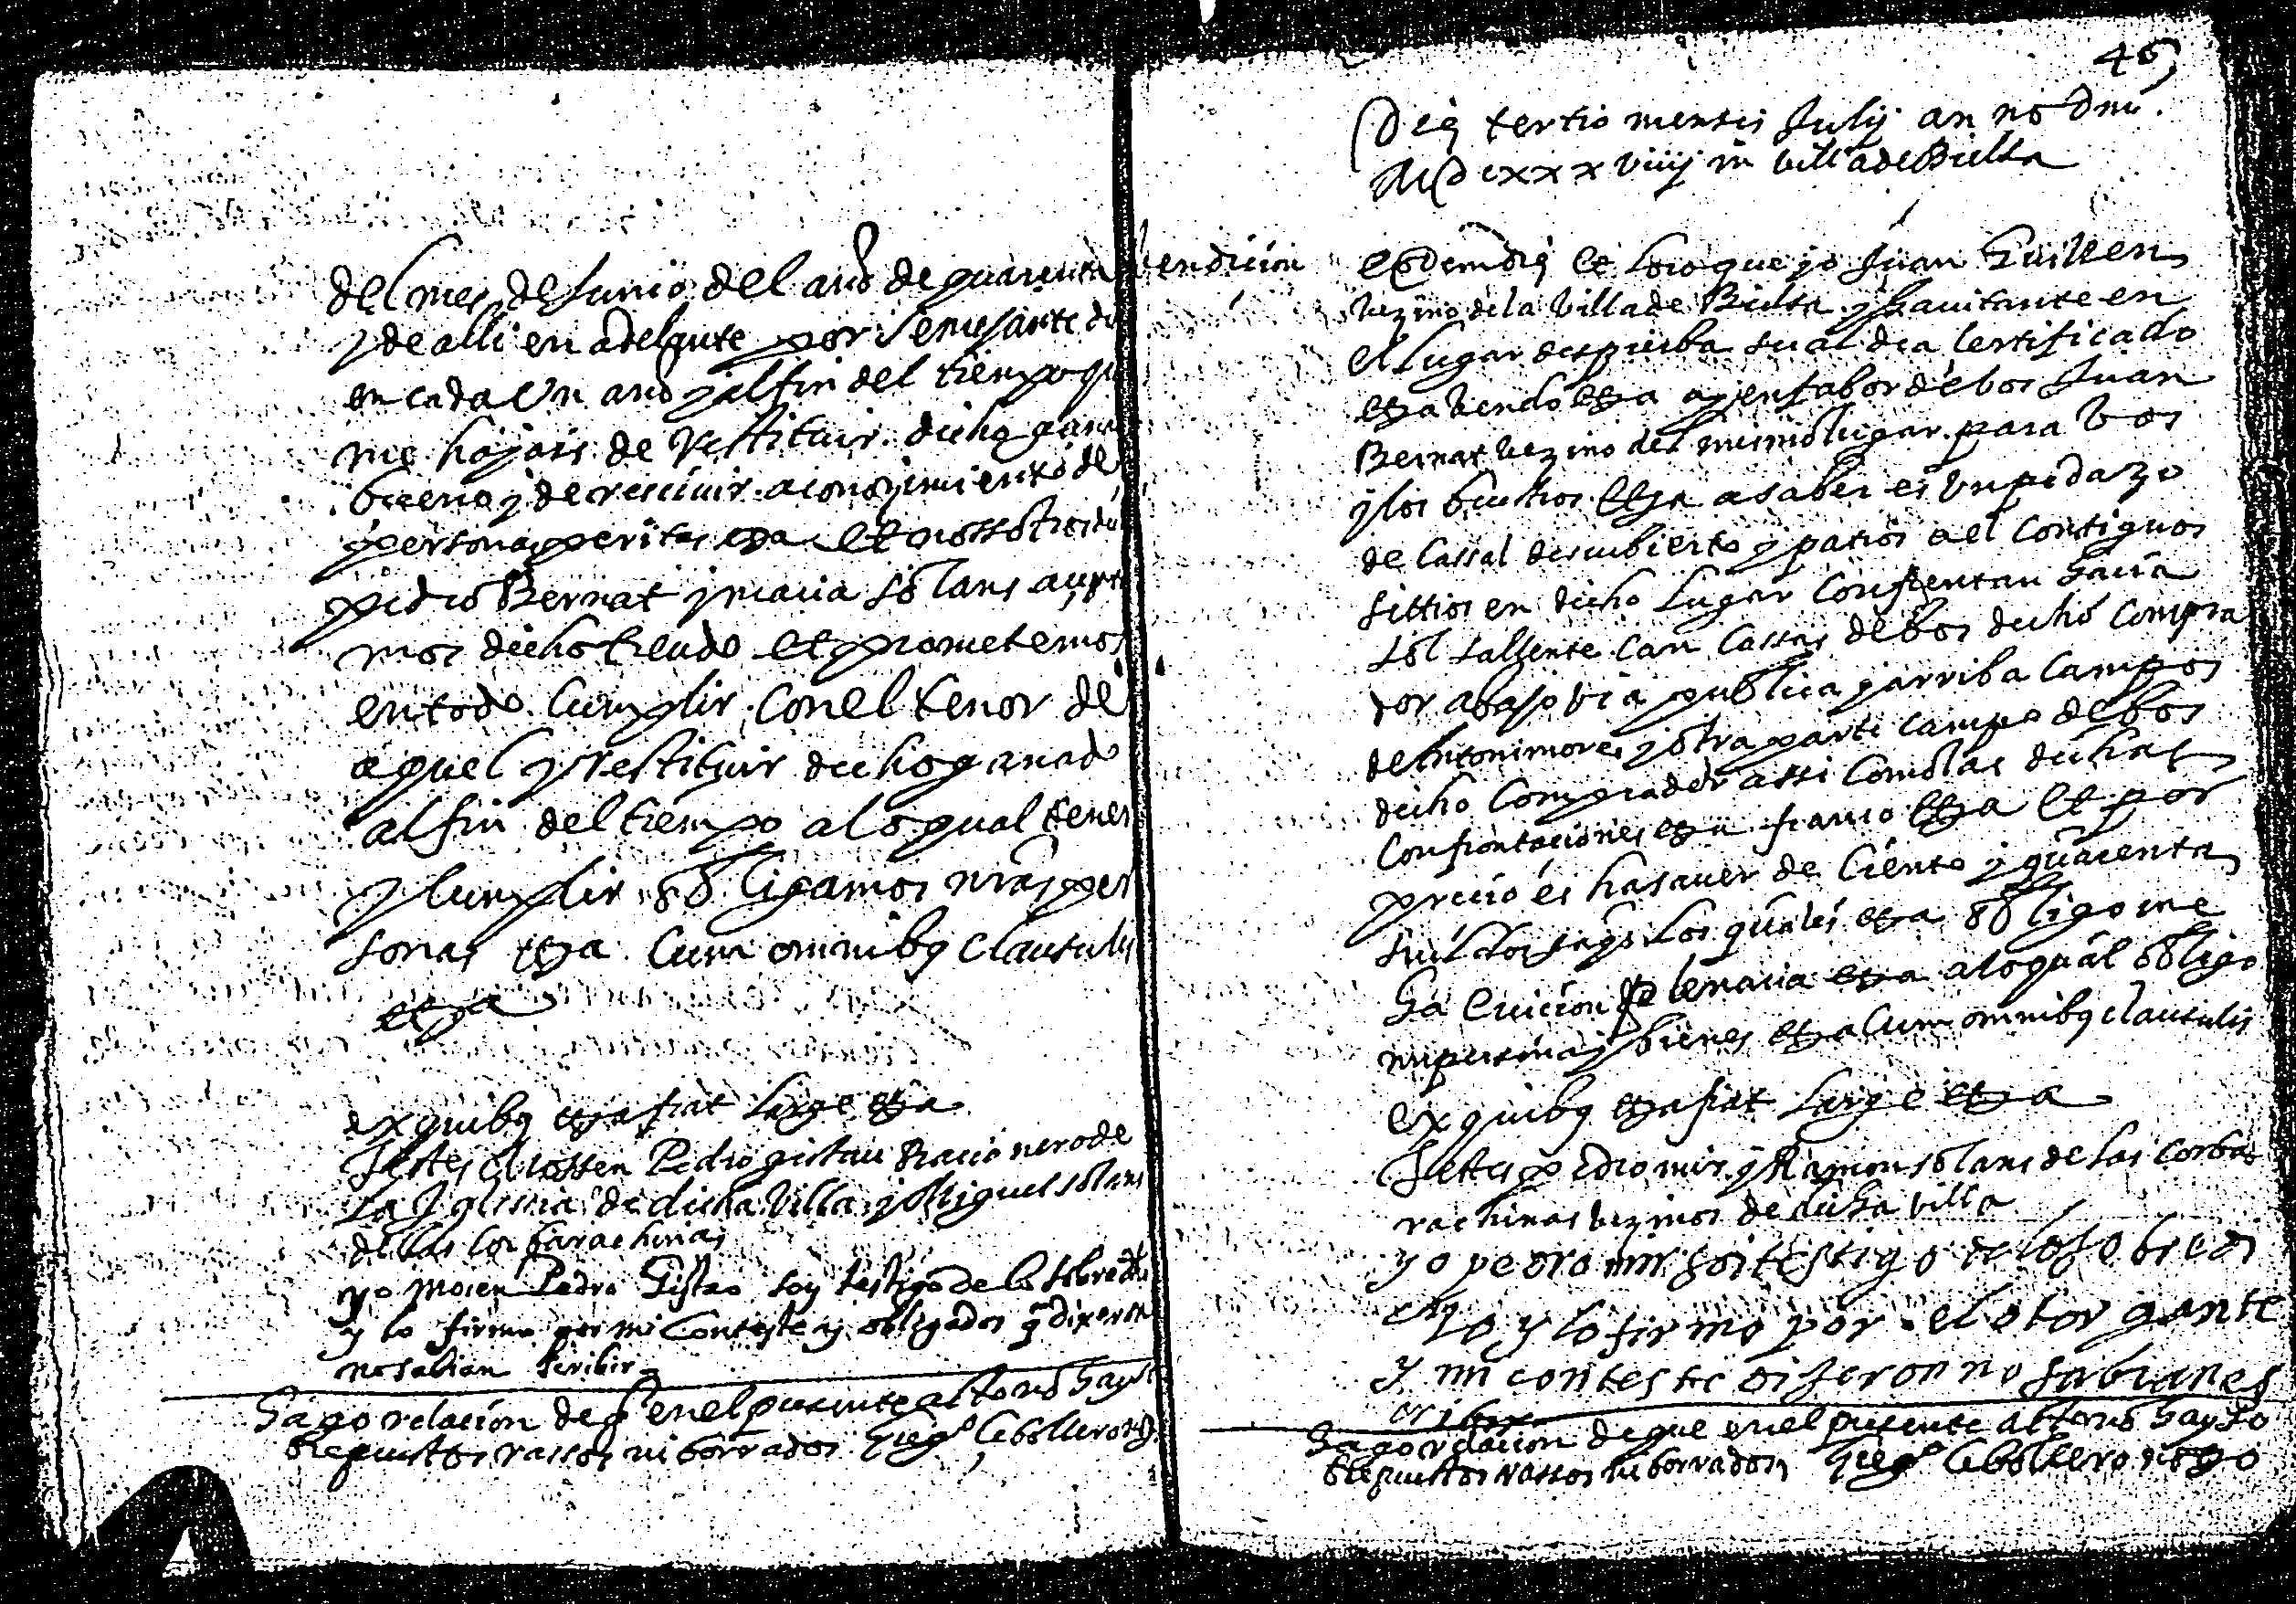 del mes de Junio del año de quarenta
y de alli en adelante por semejante di
en cada Un año y al fin del tiempo qu
me hajais de Restituir dicho gana
bueno y de resciuir a conoçimiento de
personas peritas etza et nossotros du
pedro Bernat y maria solans açepta
mos dicho treudo et prometemos
en todo Cumplir con el tenor de
aquel y restituir dicho ganado
al fin del tiempo a lo qual tener
y Cumplir obligamos nras per
sonas etza Cum omnibq clausulis
etza
ex quibq etza fiat large etza
Testes Mossen Pedro gistau Racionero de
la Iglesia de dicha Villa y Miguel solans
de las Corbarachinas
yo Mosen Pedro Gistao soy testigo de lo sobredho
y lo firmo por mi Conteste y obligados q dixeron
no sabian scribir
Hago relacion de q en el presente acto no hay so
brepuestos rassos ni borrados Grego Cebollero no
46
Die tertio mensis Julij anno dni
MDCxxxviiij in villa de Bielsa
Vendicion
eodem die ee Yo que yo Juan Guillen
vezino de la Villa de Bielsa y hauitante en
el lugar despierba su al dea Certificado
etza vendo etza a y en fabor de bos Juan
Bernat vezino del mismo lugar para bos
y los buestros etza a saber es Un pedazo
de Cassal descubierto y patios a el Contiguos
sittios en dicho lugar Confrentan hacia
sol sallente Can Cassas de bos dicho Compra
dor abajo via publica y arriba Campos
de Antoni mores y otra parte campo de bos
dicho Comprador assi Como las dichas
Confrontaciones etza franco etza et por
precio es hasauer de Ciento y quarenta
sueldos jaqs Los quales etza obligome
Ha Euicion de lemaria etza a lo qual obligo
mi persona y bienes etza Cum omnibq clausulis
ex quibq etza fiat large etza
Testes pedro mir y Ramon solans de las Corba
rachinas vezinos de dicha villa
yo pedro mir soi testigo de lo sobredi
cho y lo firmo por el otorgante
y mi conteste dijeron no sabian es
cribir
Hago relacion de que en el presente acto no hay so
brepuestos rassos ni borrados Grego Cebollero no